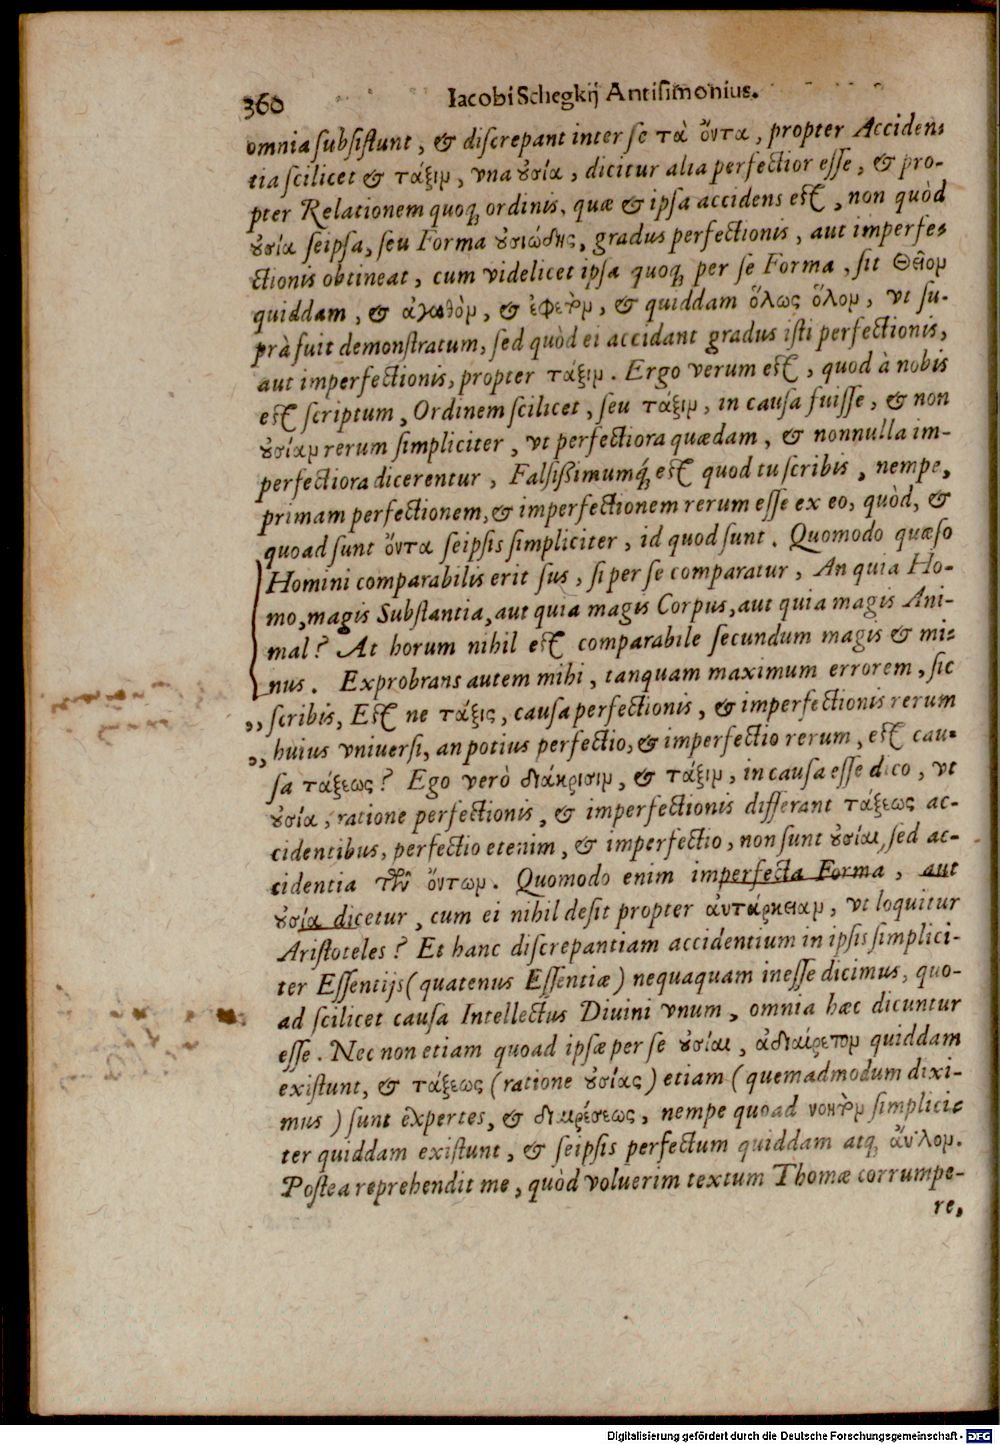 360 Iacobi Schegkij Antisimonius.
omnia subsistunt, & discrepant inter se τὰ ὄντα, propter Acciden-
tia scilicet & τάξιμ, vna ȣσία, dicitur alia perfectior esse, & pro-
pter Relationem quoq; ordinis, quæ & ipsa accidens est, non quòd
ȣσία seipsa, seu Forma ȣσιώδης, gradus perfectionis, aut imperfe-
ctionis obtineat, cum videlicet ipsa quoq; per se Forma, sit Θεῖομ
quiddam, & ἀγαθὸμ, & ἐφετὸμ, & quiddam ὅλως ὅλομ, vt su-
prà fuit demonstratum, sed quòd ei accidant gradus isti perfectionis,
aut imperfectionis, propter τάξιμ. Ergo verum est, quod à nobis
est scriptum, Ordinem scilicet, seu τάξιμ, in causa fuisse, & non
ȣσίαμ rerum simpliciter, vt perfectiora quædam, & nonnulla im-
perfectiora dicerentur, Falsißimumq́; est quod tu scribis, nempe,
primam perfectionem, & imperfectionem rerum esse ex eo, quòd, &
quoad sunt ὄντα seipsis simpliciter, id quod sunt. Quomodo quæso
Homini comparabilis erit sus, si per se comparatur, An quia Ho-
mo, magis Substantia, aut quia magis Corpus, aut quia magis Ani-
mal? At horum nihil est comparabile secundum magis & mi-
nus. Exprobrans autem mihi, tanquam maximum errorem, sic
„ scribis, Est ne τάξις, causa perfectionis, & imperfectionis rerum
„ huius vniuersi, an potius perfectio, & imperfectio rerum, est cau-
sa τάξεως? Ego verò διάκρισιμ, & τάξιμ, in causa esse dico, vt
ȣσία, ratione perfectionis, & imperfectionis differant τάξεως ac-
cidentibus, perfectio etenim, & imperfectio, non sunt ȣσίαι, sed ac-
cidentia τῶν ὄντωμ. Quomodo enim imperfecta Forma, aut
ȣσία dicetur, cum ei nihil desit propter ἀυτάρκειαμ, vt loquitur
Aristoteles? Et hanc discrepantiam accidentium in ipsis simplici-
ter Essentijs (quatenus Essentiæ) nequaquam inesse dicimus, quo-
ad scilicet causa Intellectus Diuini vnum, omnia hæc dicuntur
esse. Nec non etiam quoad ipsæ per se ȣσίαι, ἀδιαίρετομ quiddam
existunt, & τάξεως (ratione ȣσίας) etiam (quemadmodum dixi-
mus) sunt expertes, & διαιρέσεως, nempe quoad νοητὸμ simplici-
ter quiddam existunt, & seipsis perfectum quiddam atq; ἄϋλομ.
Postea reprehendit me, quòd voluerim textum Thomæ corrumpe-
re,
Digitalisierung gefördert durch die Deutsche Forschungsgemeinschaft - DFG